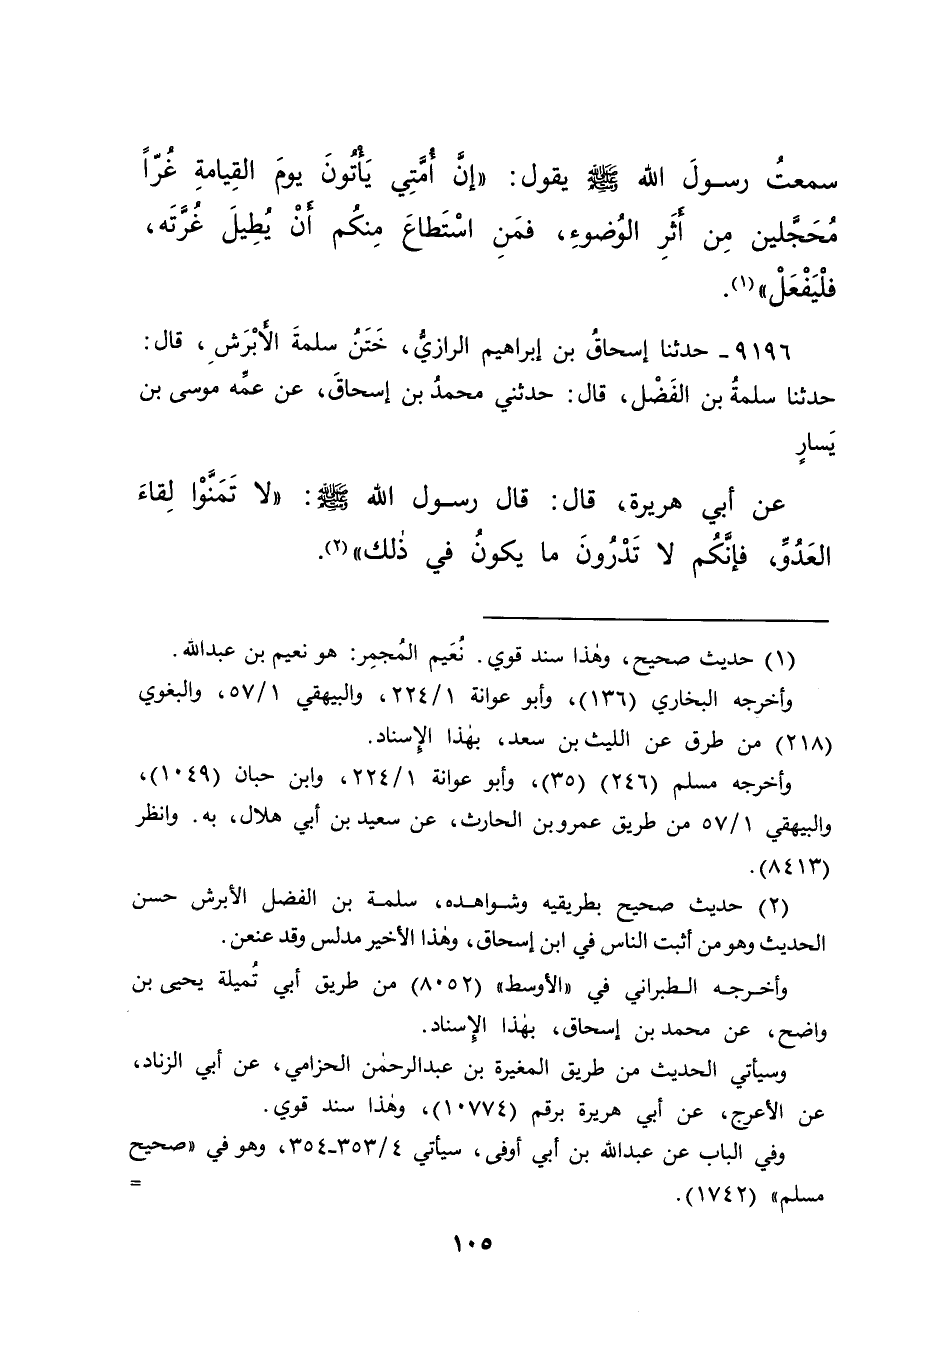 سمعتُ رسـولَ الله ﷺ يقول: «إنَّ أُمَّتِي يَأْتُونَ يومَ القِيامةِ غُرّاً
مُحَجَّلين مِن أَثَرِ الوُضوءِ، فمَنِ اسْتَطاعَ مِنكُم أَنْ يُطِيلَ غُرَّتَه،
فلْيَفْعَلْ»(١).
٩١٩٦ـ حدثنا إسحاقُ بن إبراهيم الرازيُّ، خَتَنُ سلمةَ الأَبْرَشِ، قال:
حدثنا سلمةُ بن الفَضْل، قال: حدثني محمدُ بن إسحاقَ، عن عمِّه موسى بن
يَسارٍ
عن أبي هريرة، قال: قال رسـول الله ﷺ: «لا تَمَنَّوْا لِقاءَ
العَدُوِّ، فإنَّكُم لا تَدْرُونَ ما يكونُ في ذٰلك»(٢).
(١) حديث صحيح، وهٰذا سند قوي. نُعَيم المُجمِر: هو نعيم بن عبدالله.
وأخرجه البخاري (١٣٦)، وأبو عوانة ٢٢٤/١، والبيهقي ٥٧/١، والبغوي
(٢١٨) من طرق عن الليث بن سعد، بهٰذا الإِسناد.
وأخرجه مسلم (٢٤٦) (٣٥)، وأبو عوانة ٢٢٤/١، وابن حبان (١٠٤٩)،
والبيهقي ٥٧/١ من طريق عمرو بن الحارث، عن سعيد بن أبي هلال، به. وانظر
(٨٤١٣).
(٢) حديث صحيح بطريقيه وشـواهـده، سلمـة بن الفضل الأبرش حسن
الحديث وهو من أثبت الناس في ابن إسحاق، وهٰذا الأخير مدلس وقد عنعن.
وأخـرجـه الـطبراني في «الأوسط» (٨٠٥٢) من طريق أبي تُميلة يحيى بن
واضح، عن محمد بن إسحاق، بهٰذا الإِسناد.
وسيأتي الحديث من طريق المغيرة بن عبدالرحمٰن الحزامي، عن أبي الزناد،
عن الأعرج، عن أبي هريرة برقم (١٠٧٧٤)، وهٰذا سند قوي.
وفي الباب عن عبدالله بن أبي أوفى، سيأتي ٣٥٣/٤ـ٣٥٤، وهو في «صحيح
مسلم» (١٧٤٢).
=
١٠٥